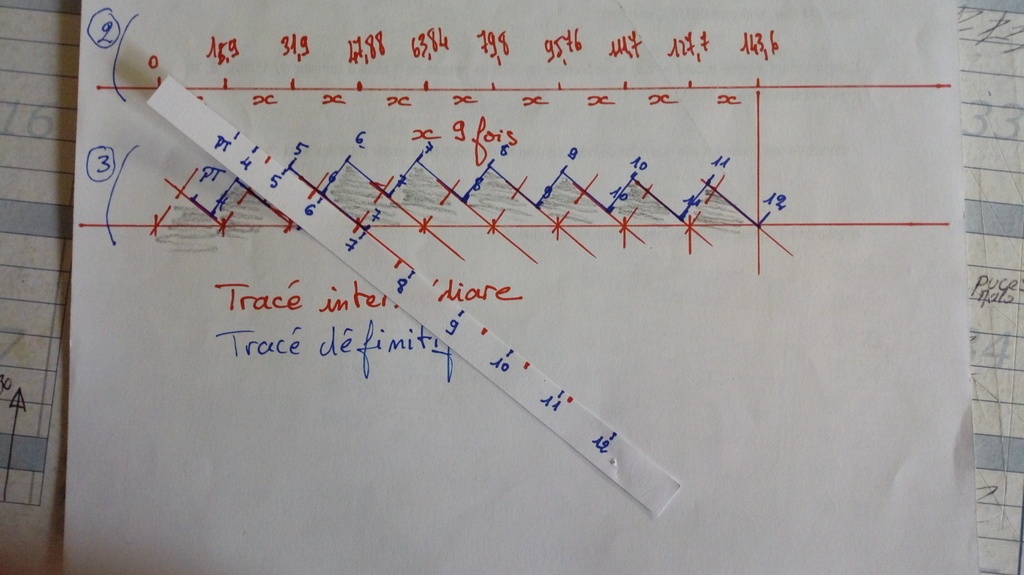 2
0 15,9 31,9 47,88 63,84 79,8 95,76 111,7 127,7 143,6
x x x x x x x x
x 9 fois
3
PT 4 5 6 7 8 9 10 11 12
PT 4 5 6 7 8 9 10 11
6 7
7 8 9 10 11 12
Tracé inter diare
Tracé définitif
16
33
34
Puce